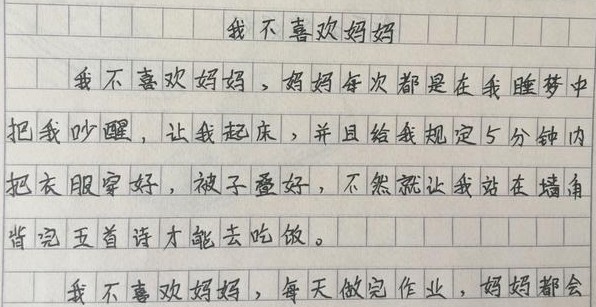 我不喜欢妈妈
我不喜欢妈妈，妈妈每次都是在我睡梦中
把我吵醒，让我起床，并且给我规定5分钟内
把衣服穿好，被子叠好，不然就让我站在墙角
背完五首诗才能去吃饭。
我不喜欢妈妈，每天做完作业，妈妈都会